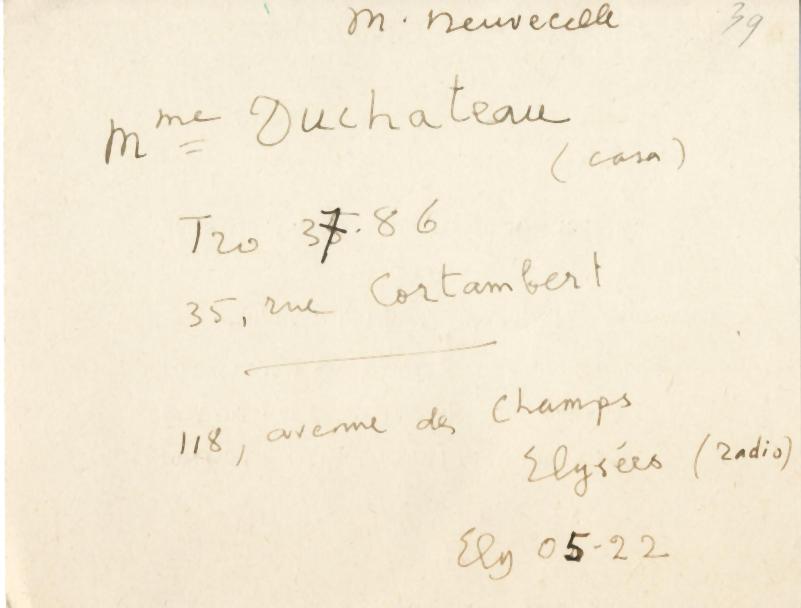 M. Neuvecelle
39
Mme Duchateau
(casa)
Tro 37.86
35, rue Cortambert
118, avenue des Champs
Elysées (radio)
Ely 05-22